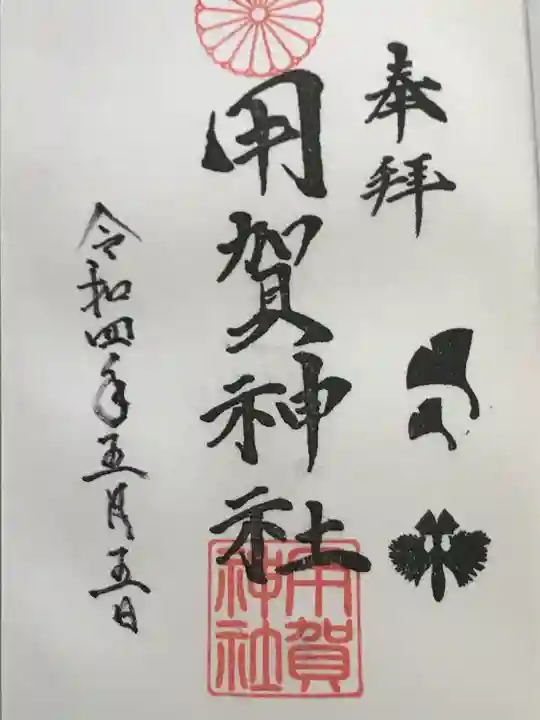 奉拝
用賀神社
用賀
神社
令和四年五月五日